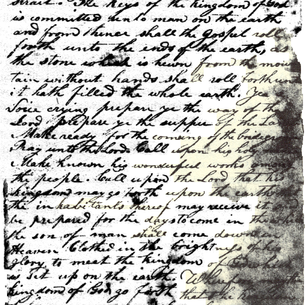 strait & the keys of the kingdom of God
is committed unto man on the earth
and from thence shall the Gospel roll
forth unto the ends of the earth, as
the stone which is hewn from the moun
tain without hands shall roll forth until
it hath filled the whole earth. Yea a
Voice crying prepare ye the way of the
Lord prepare ye the supper of the Lam
Make ready for the coming of the Bridegro
Pray unto the Lord Call upon his holy
Make known his wonderful works among
the people. Call upon the Lord that his
kingdom may go forth upon the earth
the inhabitants thereof may receive it
be prepared for the days to come in the
the son of man shall come down in
Heaven Clothed in the brightness of his
glory to meet the kingdom of God
is set up on the earth Wherefore may
kingdom of God go forth that